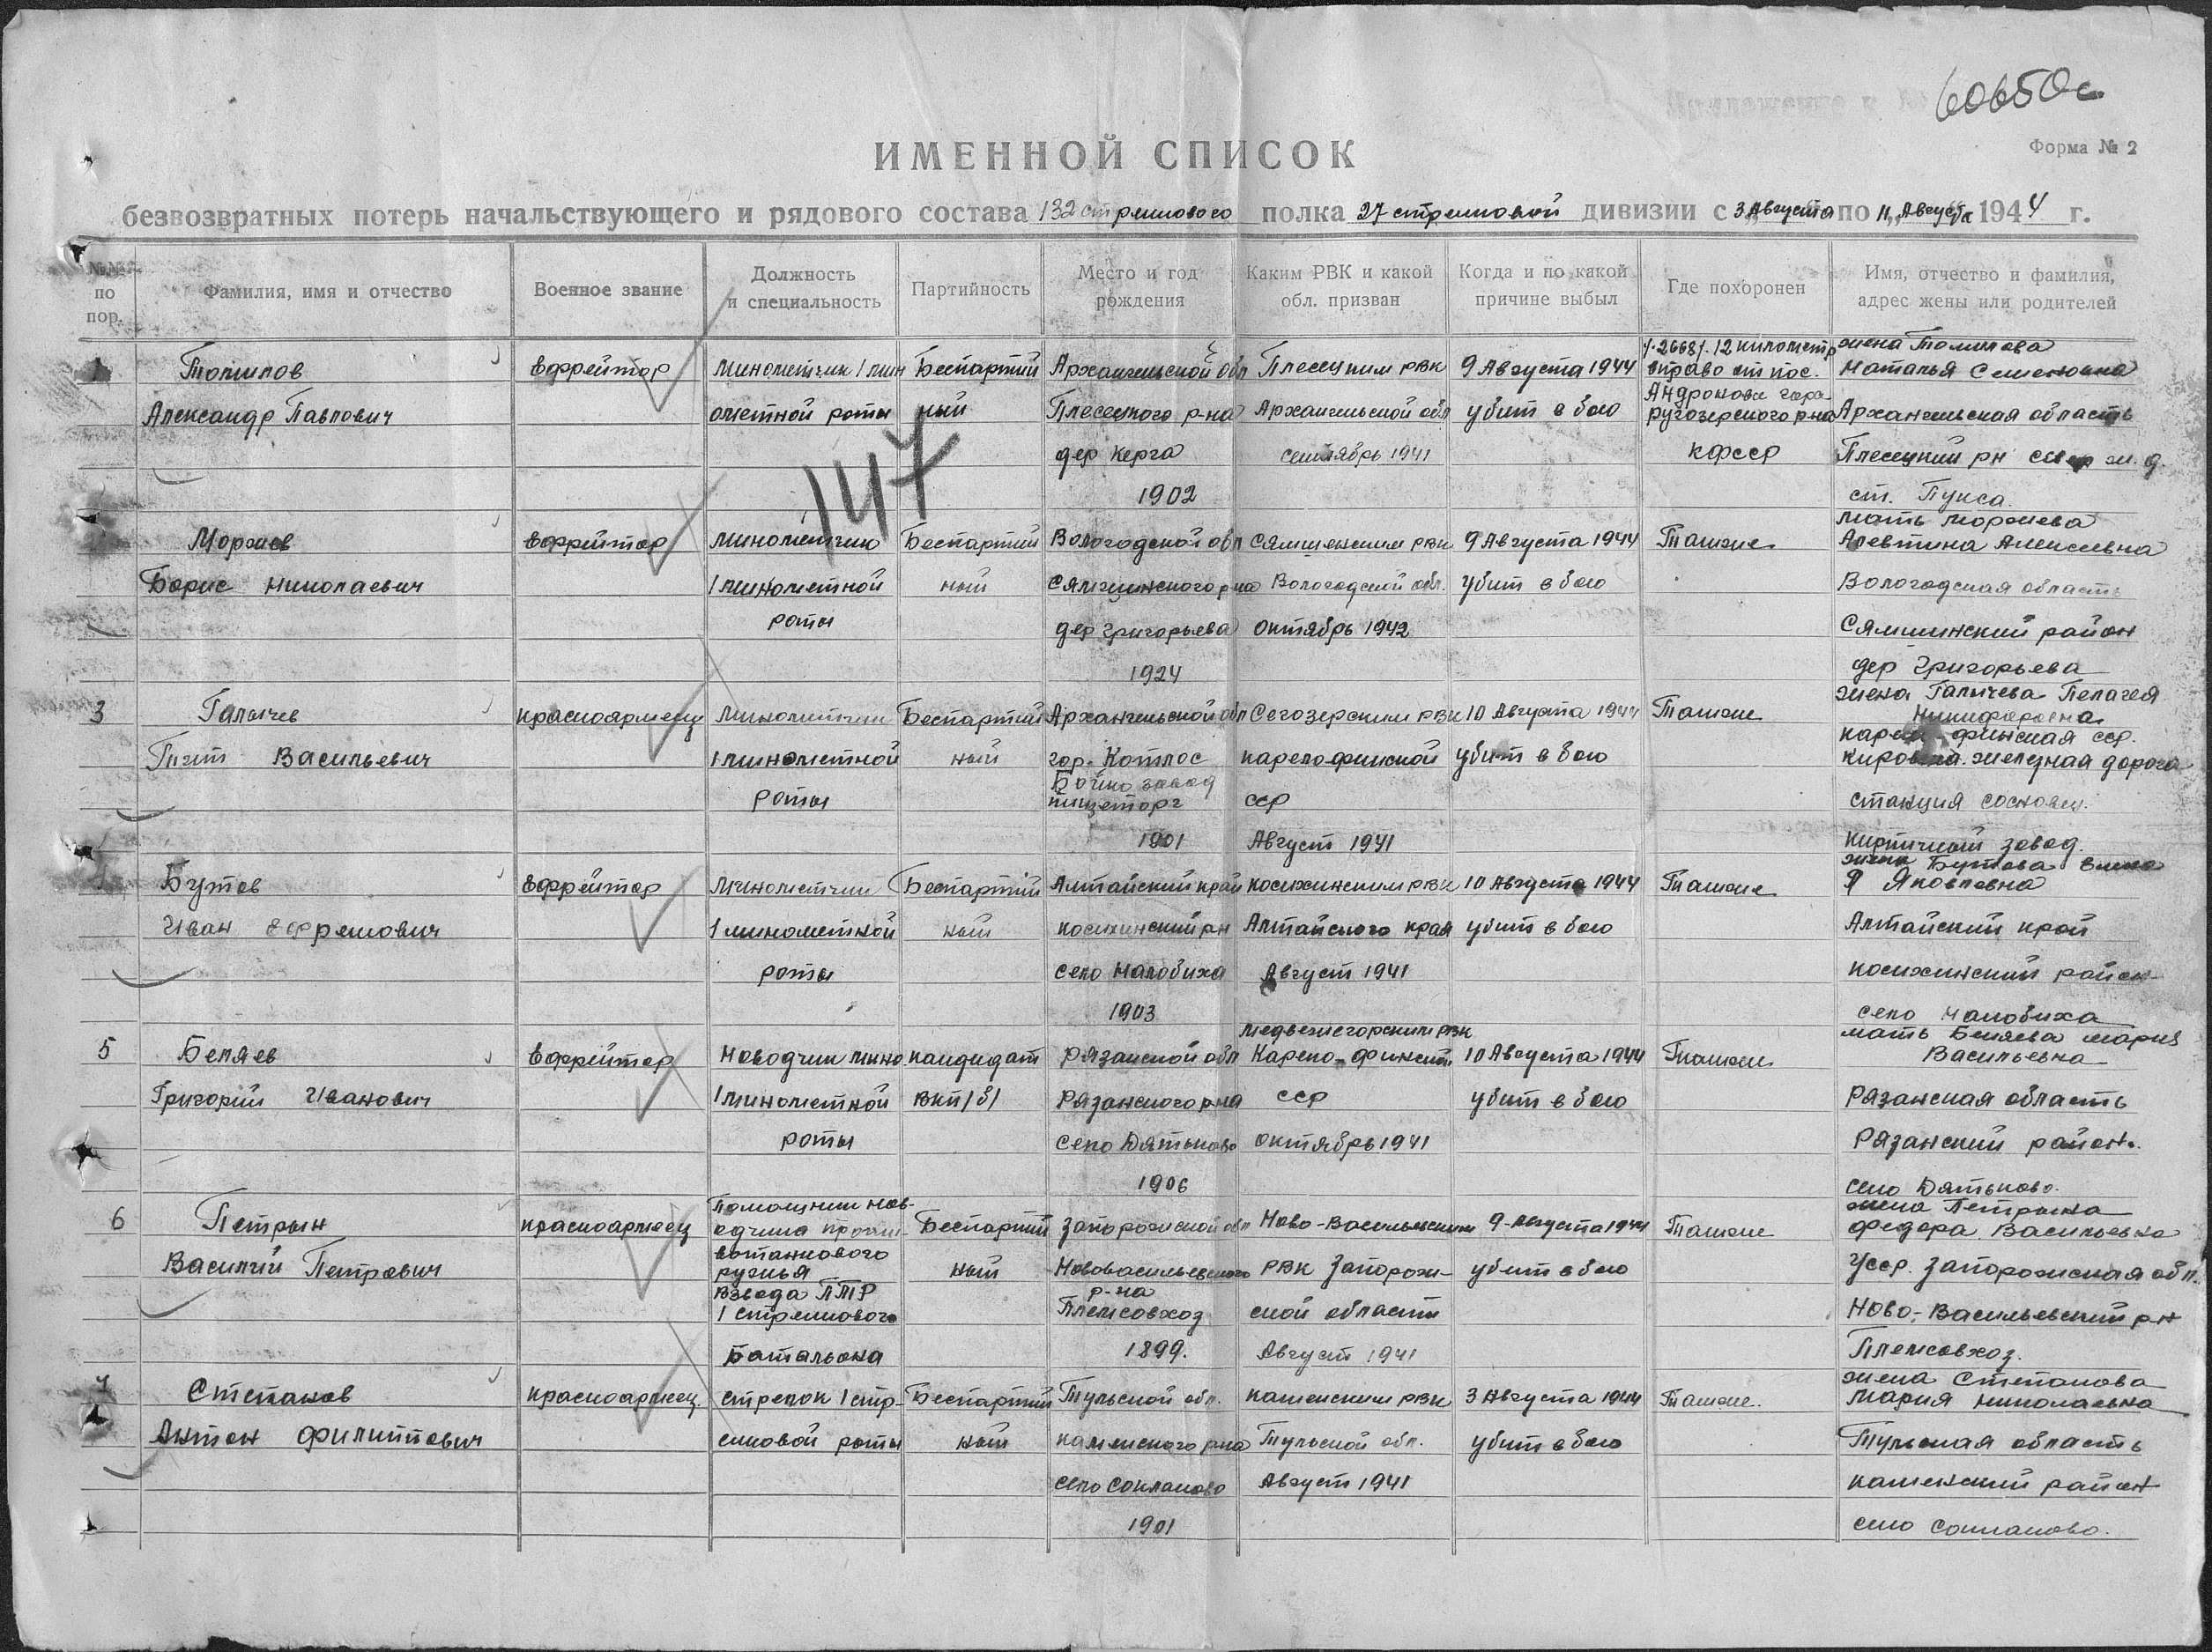 60650с
Форма № 2
ИМЕННОЙ СПИСОК
безвозвратных потерь начальствующего и рядового состава 132 стрелкового полка 27 стрелковой дивизии с 3 Августа по 11 Августа 1944 г.
№№ по пор.
Фамилия, имя и отчество
Военное звание
Должность и специальность
Партийность
Место и год рождения
Каким РВК и какой обл. призван
Когда и по какой причине выбыл
Где похоронен
Имя, отчество и фамилия, адрес жены или родителей
147
1
Томилов
Александр Павлович
Ефрейтор
минометчик 1 мин
ометной роты
Беспартий
ный
Архангельской обл
Плесецкого р-на
дер Керга
1902
Плесецким РВК
Архангельской обл
сентябрь 1941
9 Августа 1944
убит в бою
12 километр
вправо от пос.
Андронова гора
ругозерского р-на
КФССР
жена Томилова
Наталья Семеновна
Архангельская область
Плесецкий рн сев ж.д.
ст. Пукса
Моржев
Борис Николаевич
Ефрейтор
минометчик
1 минометной
роты
Беспартий
ный
Вологодской обл
Сямженского р-на
дер Григорьева
1924
Сямженским РВК
Вологодской обл.
октябрь 1942
9 Августа 1944
убит в бою
Там же
мать Моржева
Алевтина Алексеевна
Вологодская область
Сямженский район
дер Григорьева
3
Галычев
Васильевич
красноармеец
Минометчик
1 минометной
роты
Беспартий
ный
Архангельской обл
гор. Котлос
завод
пищеторг
1901
Сегозерским РВК
карело-финской
сср
Август 1941
10 Августа 1944
убит в бою
Там же
жена Галычева Пелагея
Никифоровна
карело-финская сср.
Кировская железная дорога
станция сосновец.
кирпичный завод.
Бутов
Иван Ефремович
Ефрейтор
Минометчик
1 минометной
роты
Беспартий
ный
Алтайский край
косихинский рн
село Налобиха
1903
косихинским РВК
Алтайского края
Август 1941
10 Августа 1944
убит в бою
Там же
жена Бутова Елена
Яковлевна
Алтайский край
косихинский район
село Налобиха
5
Беляев
Григорий Иванович
Ефрейтор
Наводчик мино.
1 минометной
роты
кандидат
ВКП/б/
Рязанской обл
Рязанского р-на
село Дятьково
1906
медвежегорским РВК
Карело-Финской
сср
октябрь 1941
10 Августа 1944
убит в бою
Там же
мать Беляева Мария
Васильевна
Рязанская область
Рязанский район.
село Дятьково.
6
Петрын
Василий Петрович
красноармеец
Помощник нав-
одчика проти-
вотанкового
ружья
взвода ПТР
1 стрелкового
батальона
Беспартий
ный
Запорожской обл
Нововасильевского
р-на
Племсовхоз
1899.
Ново-Васильевским
РВК Запорож-
ской области
Август 1941
9 Августа 1944
убит в бою
Там же
жена Петрына
федора Васильевна
Усср. Запорожская обл.
Ново-Васильевский рн
Племсовхоз.
7
Степанов
Антон Филиппович
красноармеец.
стрелок 1 стр-
елковой роты
Беспартий
ный
Тульской обл.
каменского р-на
село Соклаково
1901
каменским РВК
Тульской обл.
Август 1941
3 Августа 1944
убит в бою
Там же.
жена Степанова
Мария Николаевна
Тульская область
каменский район
село Соклаково.